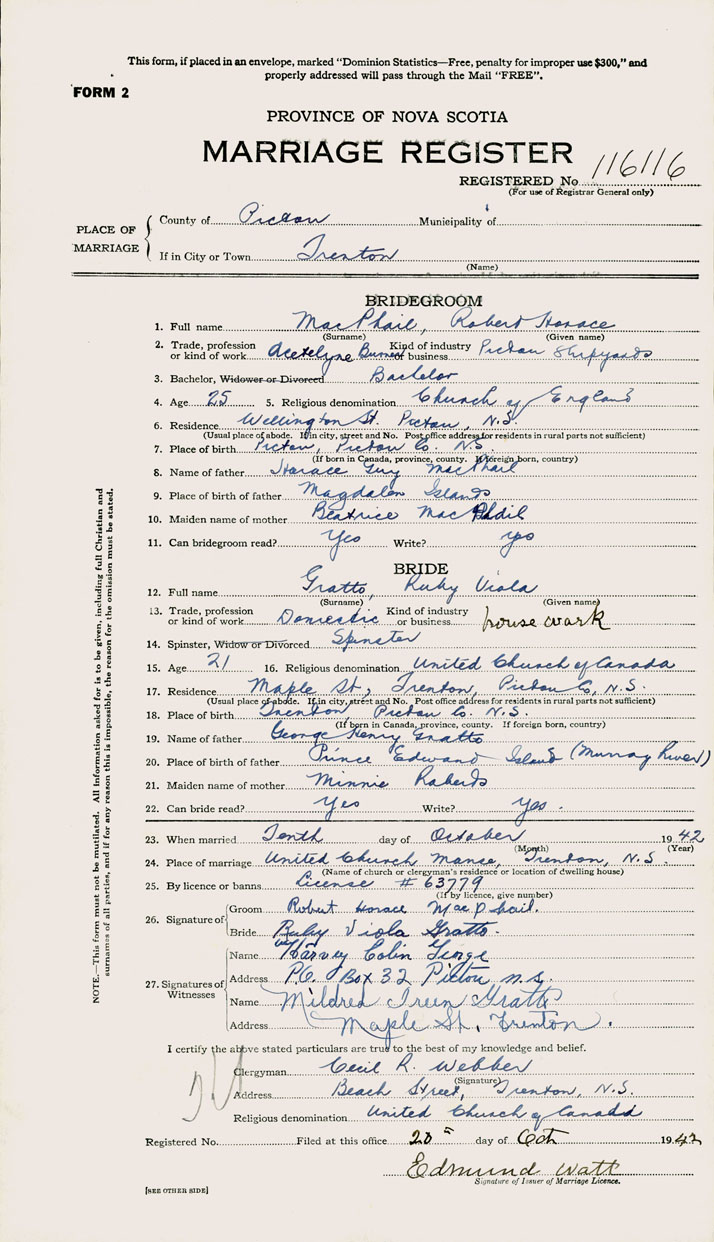 This form, if placed in an envelope, marked "Dominion Statistics—Free, penalty for improper use $300," and
properly addressed will pass through the Mail "FREE".
FORM 2
PROVINCE OF NOVA SCOTIA
MARRIAGE REGISTER
REGISTERED No 116116
(For use of Registrar General only)
PLACE OF MARRIAGE
County of Pictou Municipality of
If in City or Town Trenton
(Name)
BRIDEGROOM
1. Full name MacPhail, Robert Horace
(Surname) (Given name)
2. Trade, profession or kind of work Acetelyne Burner Kind of industry or business Pictou Shipyards
3. Bachelor, Widower or Divorced Bachelor
4. Age 25 5. Religious denomination Church of England
6. Residence Wellington St. Pictou, N.S.
(Usual place of abode. If in city, street and No. Post office address for residents in rural parts not sufficient)
7. Place of birth Pictou, Pictou Co. N.S.
(If born in Canada, province, county. If foreign born, country)
8. Name of father Horace Guy MacPhail
9. Place of birth of father Magdalen Islands
10. Maiden name of mother Beatrice MacPhail
11. Can bridegroom read? Yes Write? yes
BRIDE
12. Full name Gratto, Ruby Viola
(Surname) (Given name)
13. Trade, profession or kind of work Domestic Kind of industry or business house work
14. Spinster, Widow or Divorced Spinster
15. Age 21 16. Religious denomination United Church of Canada
17. Residence Maple St, Trenton, Pictou Co, N.S.
(Usual place of abode. If in city, street and No. Post office address for residents in rural parts not sufficient)
18. Place of birth Trenton Pictou Co. N.S.
(If born in Canada, province, county. If foreign born, country)
19. Name of father George Henry Gratto
20. Place of birth of father Prince Edward Island (Murray River)
21. Maiden name of mother Minnie Roberts
22. Can bride read? Yes Write? Yes.
23. When married Tenth day of October 1942
(Month) (Year)
24. Place of marriage United Church Manse, Trenton, N.S.
(Name of church or clergyman's residence or location of dwelling house)
25. By licence or banns License # 63779
(If by licence, give number)
26. Signature of
Groom Robert Horace MacPhail.
Bride Ruby Viola Gratto.
27. Signatures of Witnesses
Name Harvey Colin
Address P.O. Box 32 Pictou n.s.
Name Mildred Gratto
Address Maple St, Trenton.
I certify the above stated particulars are true to the best of my knowledge and belief.
Clergyman Cecil R. Webber
(Signature)
Address Beach Street, Trenton, N.S.
Religious denomination United Church of Canada
Registered No. Filed at this office 20 day of Oct 1942
Edmund Watt
Signature of Issuer of Marriage Licence.
[SEE OTHER SIDE]
NOTE.—This form must not be mutilated. All information asked for is to be given, including full Christian and
surnames of all parties, and if for any reason this is impossible, the reason for the omission must be stated.